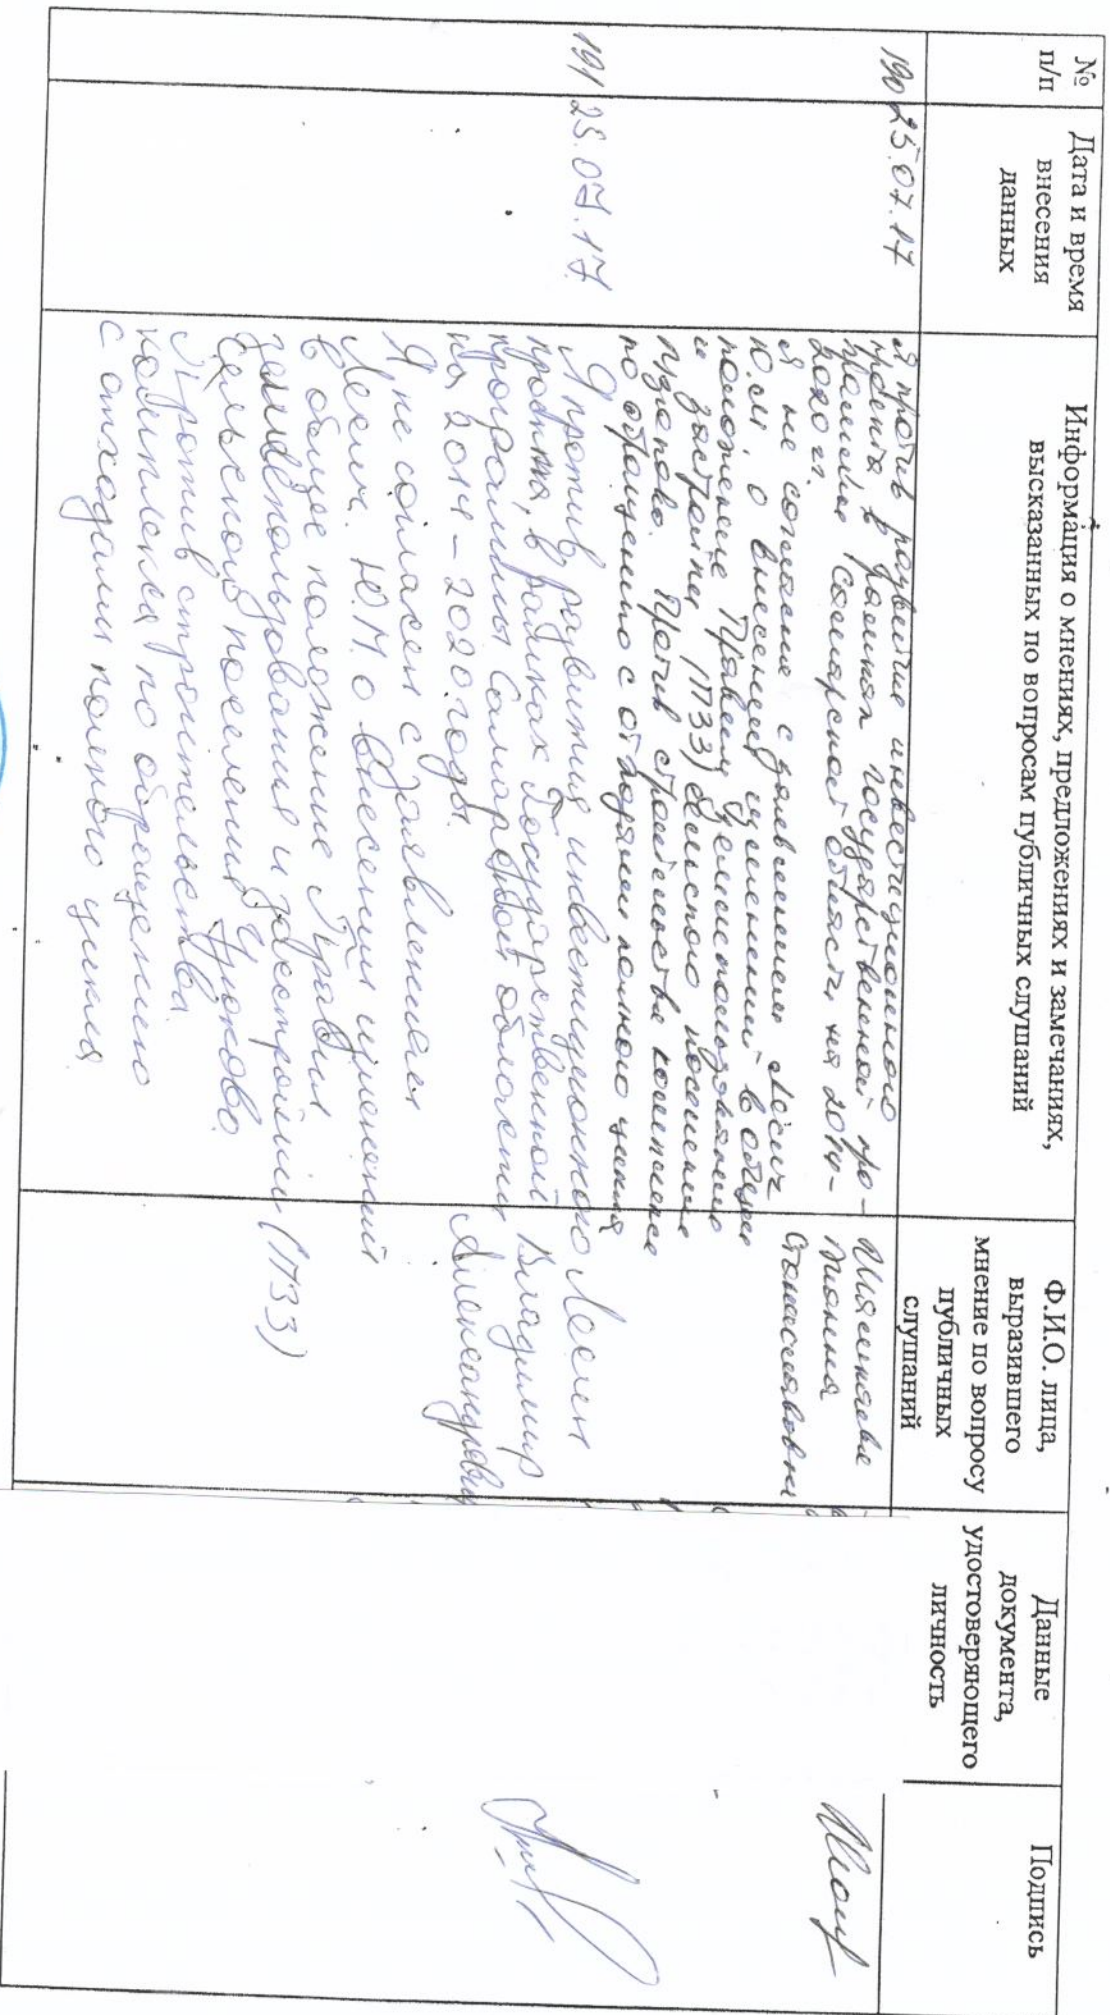 №
п/п
Дата и время
внесения
данных
Информация о мнениях, предложениях и замечаниях,
высказанных по вопросам публичных слушаний
Ф.И.О. лица,
выразившего
мнение по вопросу
публичных
слушаний
Данные
документа,
удостоверяющего
личность
Подпись
190
25.07.17
Я против развитие инвестиционного
проекта в рамках государственной про-
граммы Самарской области на 2014-
2020 гг.
Я не согласна с заявлением Лесич
Ю.М. о внесении изменений в общее
положение Правил землепользования
и застройки (ПЗЗ) сельского поселения
Против строительства комплекса
по обращению с отходами полного цикла
Татьяна
Станиславовна
191
25.07.17
Я против развития инвестиционного
проекта, в рамках Государственной
программы Самарской области
на 2014-2020 годы.
Я не согласен с заявлением
Лесич. Ю.М. о внесении изменений
в общее положение Правил
землепользования и застройки (ПЗЗ)
сельского поселения
Против строительства
комплекса по обращению
с отходами полного цикла
Владимир
Александрович